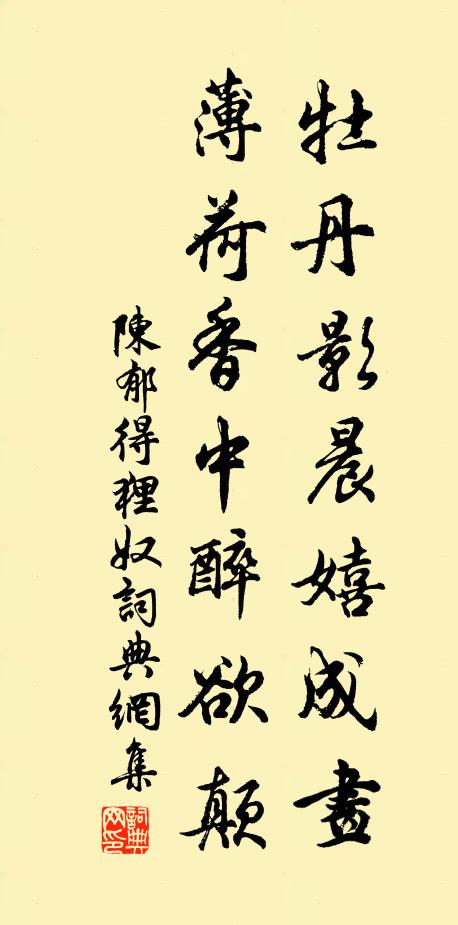 牡丹影晨嬉成畫
薄荷香中醉欲顛
陳郁得狸奴詞典網集
詞典網印